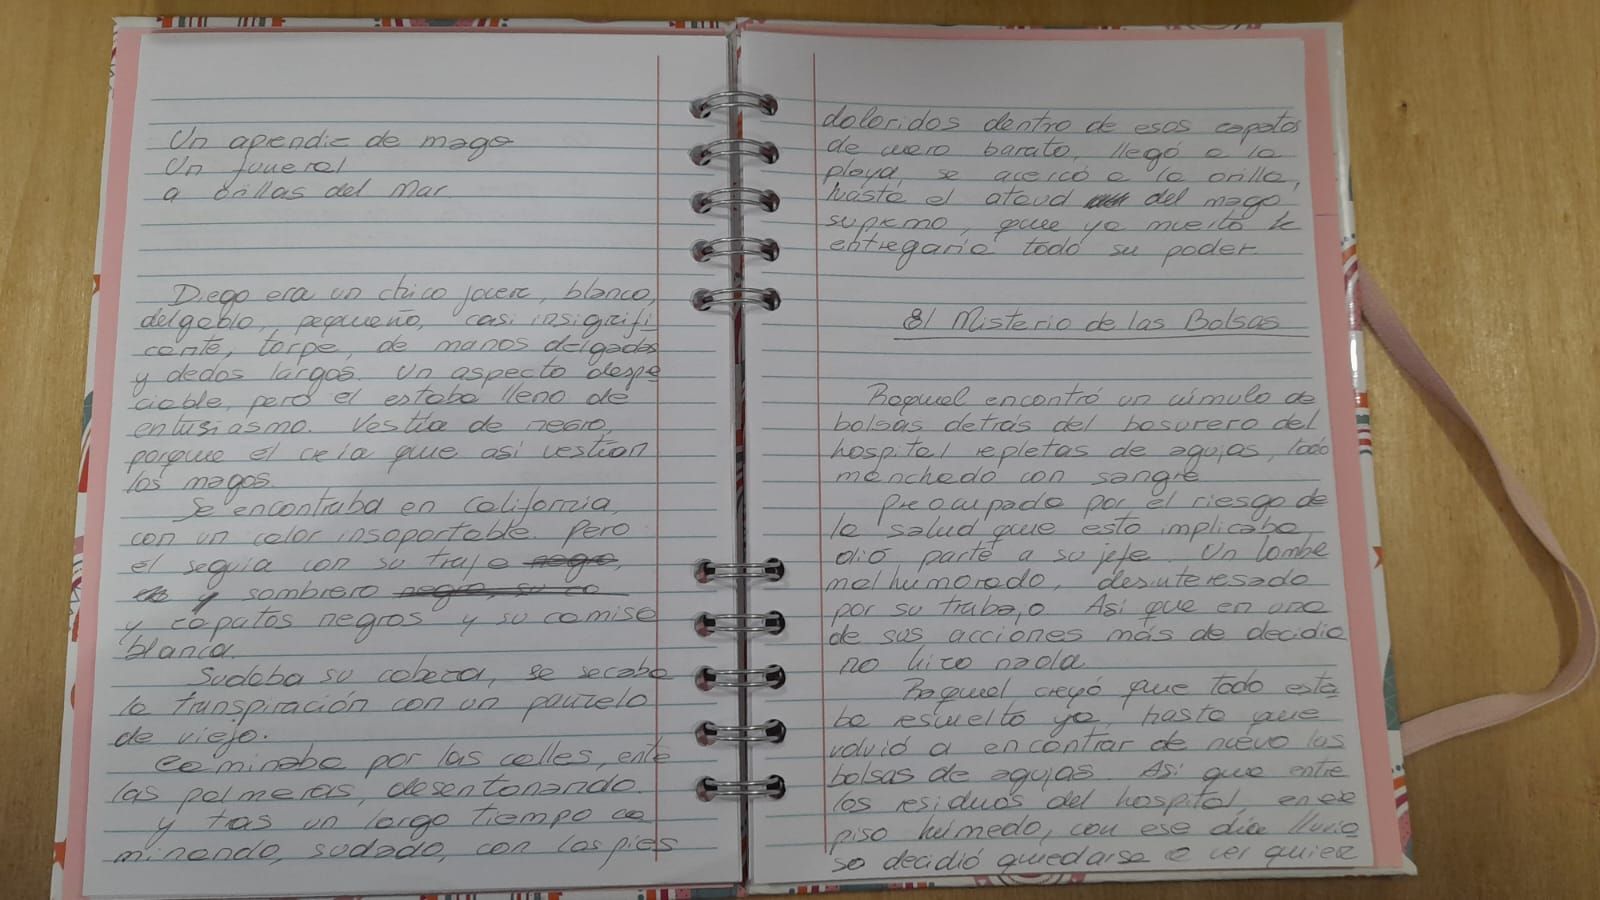 Un aprendiz de mago
Un funeral
a orillas del mar
Diego era un chico joven, blanco,
delgado, pequeño, casi insignifi
cante, torpe, de manos delgadas
y dedos largos. Un aspecto despre
ciable, pero el estaba lleno de
entusiasmo. Vestía de negro,
porque el creía que así vestían
los magos.
Se encontraba en California,
con un calor insoportable. Pero
el seguia con su traje negro,
y sombrero negro, su
y zapatos negros y su camisa
blanca.
Sudaba su cabeza, se secaba
la transpiración con un pañuelo
de viejo.
Caminaba por las calles, entre
las palmeras, desentonando.
y tras un largo tiempo ca
minando, sudado, con los pies
doloridos dentro de esos zapatos
de cuero barato, llegó a la
playa, se acercó a la orilla,
hasta el ataud del mago
supremo, que ya muerto le
entregaría todo su poder.
El Misterio de las Bolsas
Raquel encontró un cúmulo de
bolsas detrás del basurero del
hospital repletas de agujas, todo
manchado con sangre.
Preocupada por el riesgo de
la salud que esto implicaba
dió parte a su jefe. Un hombre
malhumorado, desinteresado
por su trabajo. Así que en una
de sus acciones más de decidia
no hizo nada.
Raquel creyó que todo esta
ba resuelto ya, hasta que
volvió a encontrar de nuevo las
bolsas de agujas. Así que entre
los residuos del hospital, en ese
piso húmedo, con ese día lluvio
so decidió quedarse a ver quien